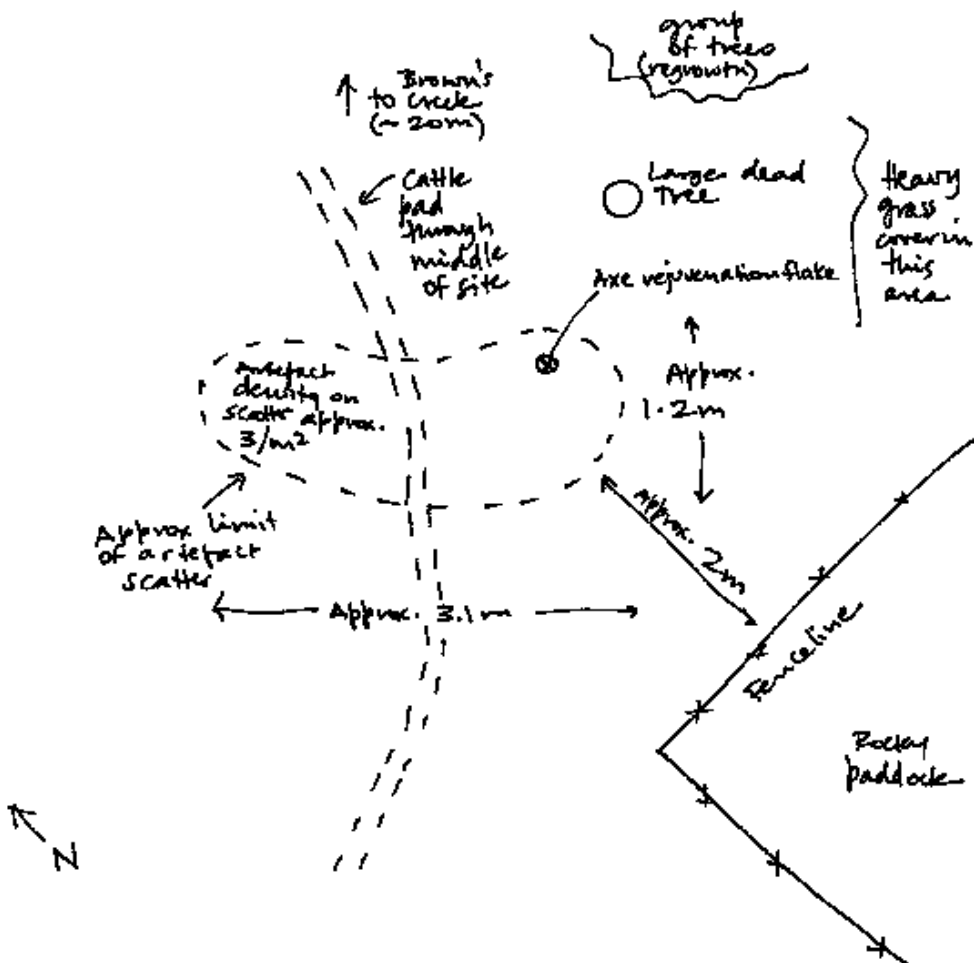 group
of trees
(regrowth)
Brown's
to creek
(~ 20m)
Cattle
pad
through
middle
of site
Large dead
Tree
Heavy
grass
cover in
this
area
Axe rejuvenation flake
Artefact
density on
scatter approx.
3/m²
Approx.
1.2m
Approx limit
of artefact
scatter
Approx. 2m
Approx. 3.1m
Fenceline
Rocky
paddock
N